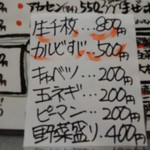 アカセン(並)550
圧千枚…800円
カルビすじ…500円
キャベツ…200円
玉ネギ…200円
ピーマン…200円
野菜盛り…400円